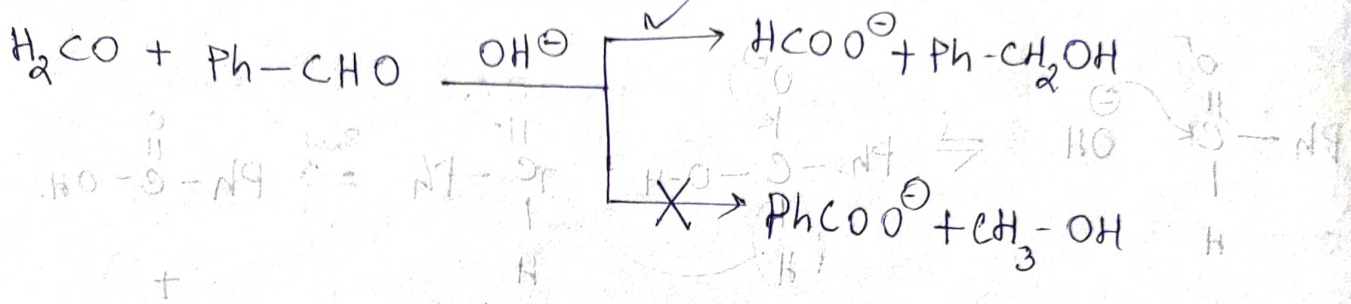 H₂CO + Ph-CHO OH⊖ ✓→ HCOO⊖ + Ph-CH₂OH
X→ PhCOO⊖ + CH₃-OH